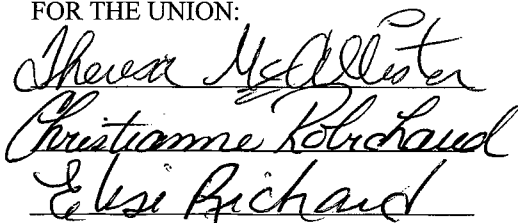 FOR THE UNION:
Theresa McAllister
Christianne Robichaud
Elise Richard